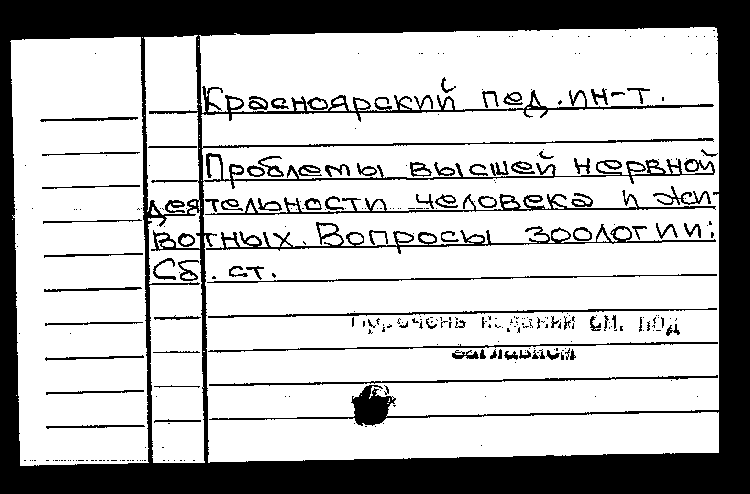 Красноярский пед.ин-т.
Проблемы высшей нервной
деятельности человека и жи-
вотных. Вопросы зоологии:
Сб. ст.
Перечень изданий см. под
заглавием